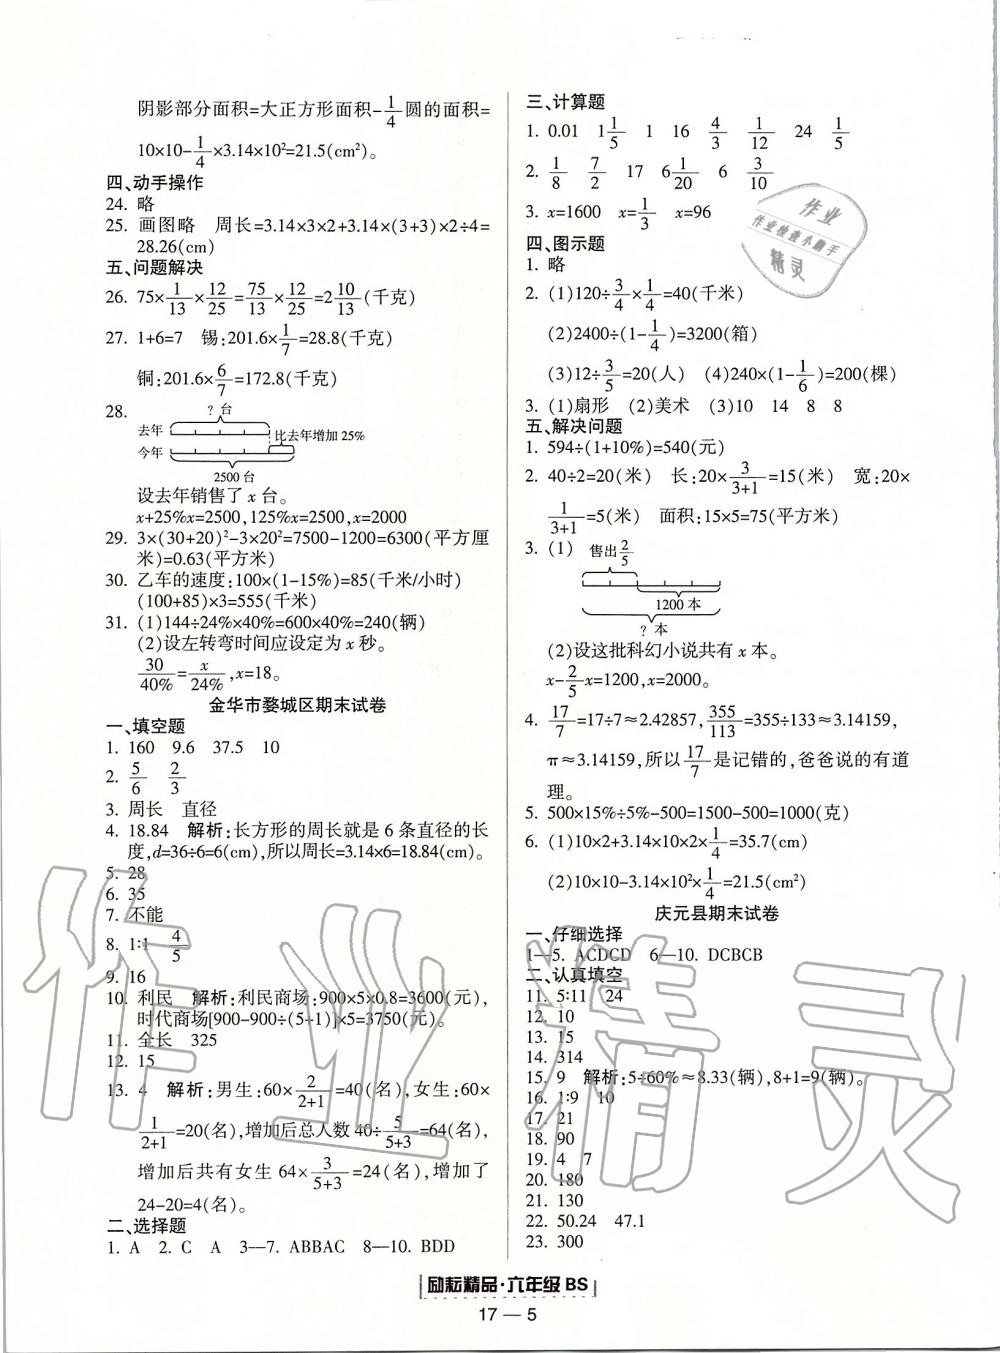 阴影部分面积=大正方形面积-1/4圆的面积=
10×10-1/4×3.14×10²=21.5(cm²)。
四、动手操作
24. 略
25. 画图略 周长=3.14×3×2+3.14×(3+3)×2÷4=
28.26(cm)
五、问题解决
26. 75×1/13×12/25=75/13×12/25=2 10/13(千克)
27. 1+6=7 锡:201.6×1/7=28.8(千克)
铜:201.6×6/7=172.8(千克)
28.
?台
去年
比去年增加25%
今年
2500台
设去年销售了x台。
x+25%x=2500,125%x=2500,x=2000
29. 3×(30+20)²-3×20²=7500-1200=6300(平方厘
米)=0.63(平方米)
30. 乙车的速度:100×(1-15%)=85(千米/小时)
(100+85)×3=555(千米)
31. (1)144÷24%×40%=600×40%=240(辆)
(2)设左转弯时间应设定为x秒。
30/40%=x/24%,x=18。
金华市婺城区期末试卷
一、填空题
1. 160 9.6 37.5 10
2. 5/6 2/3
3. 周长 直径
4. 18.84 解析:长方形的周长就是6条直径的长
度,d=36÷6=6(cm),所以周长=3.14×6=18.84(cm)。
5. 28
6. 35
7. 不能
8. 1∶1 4/5
9. 16
10. 利民 解析:利民商场:900×5×0.8=3600(元),
时代商场[900-900÷(5+1)]×5=3750(元)。
11. 全长 325
12. 15
13. 4 解析:男生:60×2/(2+1)=40(名),女生:60×
1/(2+1)=20(名),增加后总人数40÷5/(5+3)=64(名),
增加后共有女生64×3/(5+3)=24(名),增加了
24-20=4(名)。
二、选择题
1. A 2. C A 3—7. ABBAC 8—10. BDD
三、计算题
1. 0.01 1 1/5 1 16 4/3 1/12 24 1/5
2. 1/8 7/2 17 6 1/20 6 3/10
3. x=1600 x=1/3 x=96
四、图示题
1. 略
2. (1)120÷3/4×1/4=40(千米)
(2)2400÷(1-1/4)=3200(箱)
(3)12÷3/5=20(人) (4)240×(1-1/6)=200(棵)
3. (1)扇形 (2)美术 (3)10 14 8 8
五、解决问题
1. 594÷(1+10%)=540(元)
2. 40÷2=20(米) 长:20×3/(3+1)=15(米) 宽:20×
1/(3+1)=5(米) 面积:15×5=75(平方米)
3. (1) 售出2/5
1200本
?本
(2)设这批科幻小说共有x本。
x-2/5x=1200,x=2000。
4. 17/7=17÷7≈2.42857,355/113=355÷133≈3.14159,
π≈3.14159,所以17/7是记错的,爸爸说的有道
理。
5. 500×15%÷5%-500=1500-500=1000(克)
6. (1)10×2+3.14×10×2×1/4=35.7(cm)
(2)10×10-3.14×10²×1/4=21.5(cm²)
庆元县期末试卷
一、仔细选择
1—5. ACDCD 6—10. DCBCB
二、认真填空
11. 5∶11 24
12. 10
13. 15
14. 314
15. 9 解析:5÷60%≈8.33(辆),8+1=9(辆)。
16. 1∶9 10
17. 21
18. 90
19. 4 7
20. 180
21. 130
22. 50.24 47.1
23. 300
作业
作业检查小助手
精灵
作业精灵
励耘精品·六年级 BS
17 — 5